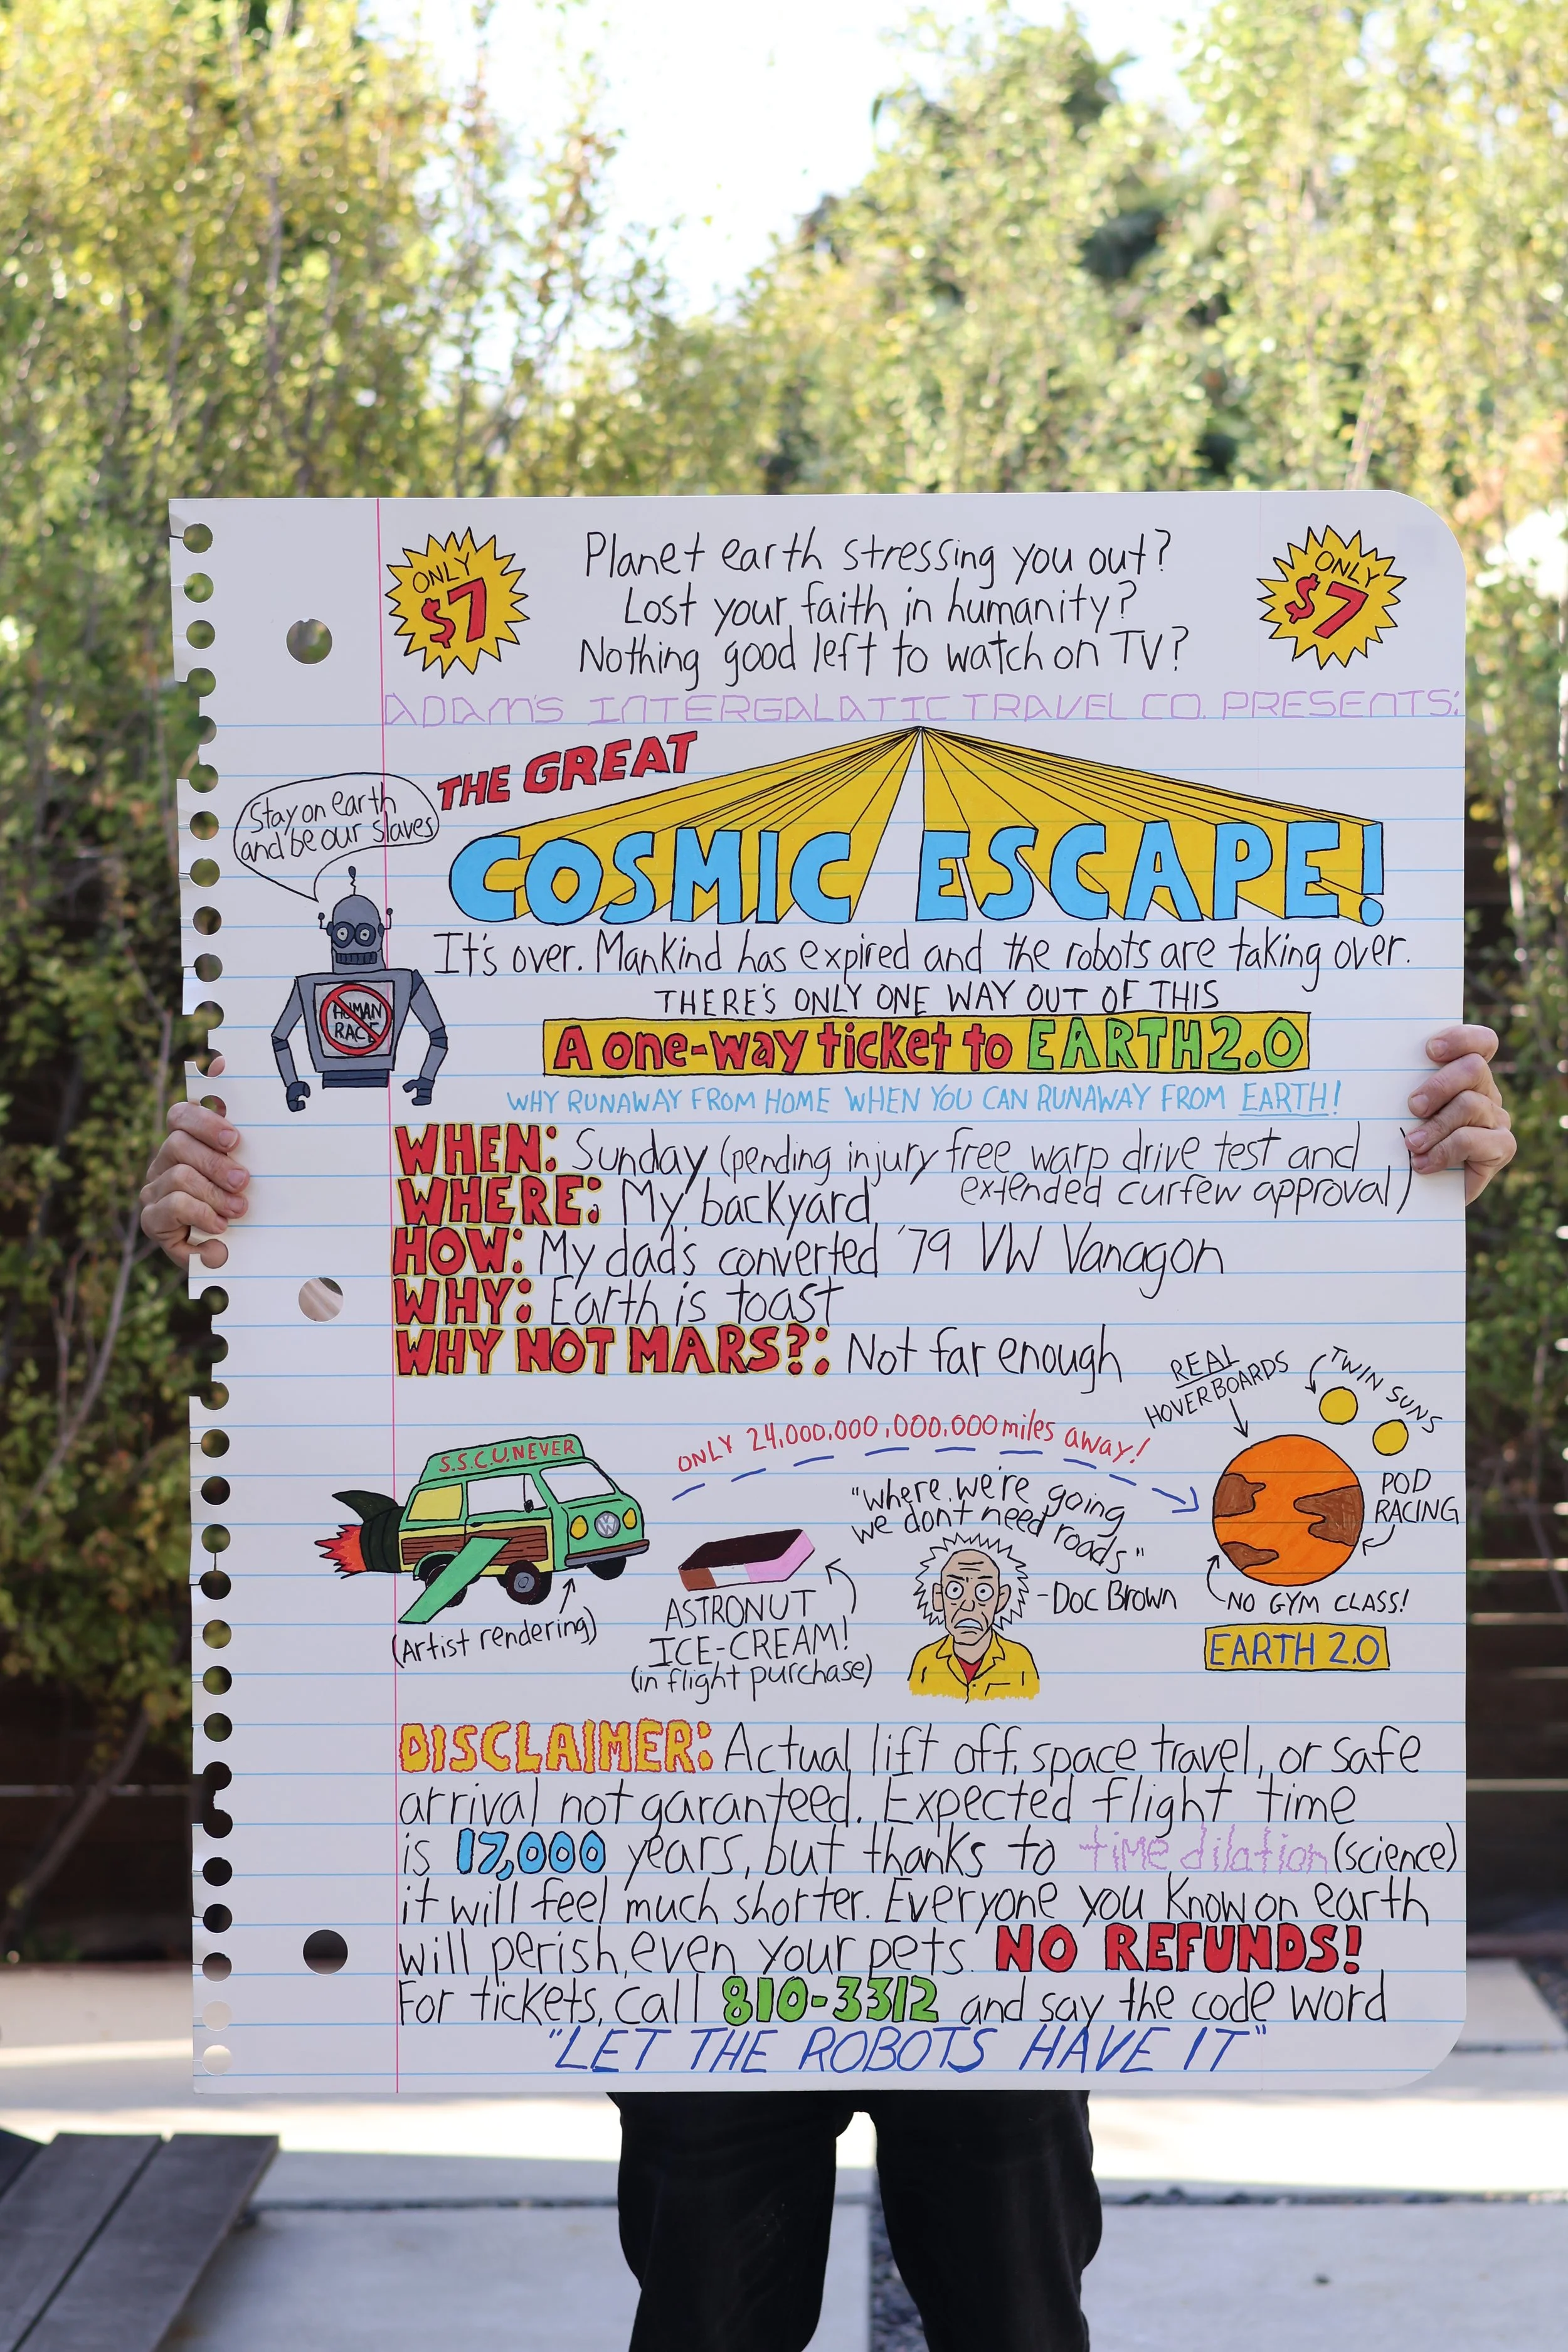 ONLY $7
Planet earth stressing you out?
Lost your faith in humanity?
Nothing good left to watch on TV?
ONLY $7
ADAM'S INTERGALACTIC TRAVEL CO. PRESENTS:
THE GREAT
COSMIC ESCAPE!
Stay on earth
and be our slaves
HUMAN
RACE
It's over. Mankind has expired and the robots are taking over.
THERE'S ONLY ONE WAY OUT OF THIS
A one-way ticket to EARTH 2.0
WHY RUNAWAY FROM HOME WHEN YOU CAN RUNAWAY FROM EARTH!
WHEN: Sunday (pending injury free warp drive test and
extended curfew approval)
WHERE: My backyard
HOW: My dad's converted '79 VW Vanagon
WHY: Earth is toast
WHY NOT MARS?: Not far enough
S.S.C.U.NEVER
VW
(Artist rendering)
ONLY 24,000,000,000,000 miles away!
ASTRONUT
ICE-CREAM!
(in flight purchase)
"where we're going
we don't need roads"
-Doc Brown
REAL
HOVERBOARDS
TWIN SUNS
POD
RACING
NO GYM CLASS!
EARTH 2.0
DISCLAIMER: Actual lift off, space travel, or safe
arrival not garanteed. Expected flight time
is 17,000 years, but thanks to time dilation (science)
it will feel much shorter. Everyone you know on earth
will perish, even your pets. NO REFUNDS!
For tickets, call 810-3312 and say the code word
"LET THE ROBOTS HAVE IT"